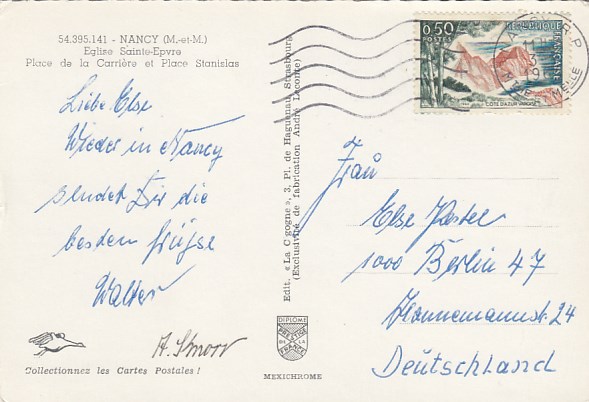 54.395.141 - NANCY (M.-et-M.)
Eglise Sainte-Epvre
Place de la Carrière et Place Stanislas
Liebe Else
Wieder in Nancy
sendet Dir die
besten Grüsse
Walter
Collectionnez les Cartes Postales !
Edit. « La Cigogne », 3, Pl. de Haguenau, Strasbourg
(Exclusivité de fabrication André Leconte)
DIPLOME
PRESTIGE
DE LA
FRANCE
MEXICHROME
0,50
POSTES
REPUBLIQUE
FRANÇAISE
COTE D'AZUR VAROISE
Frau
Else
1000 Berlin 47
Hannemannstr. 24
Deutschland